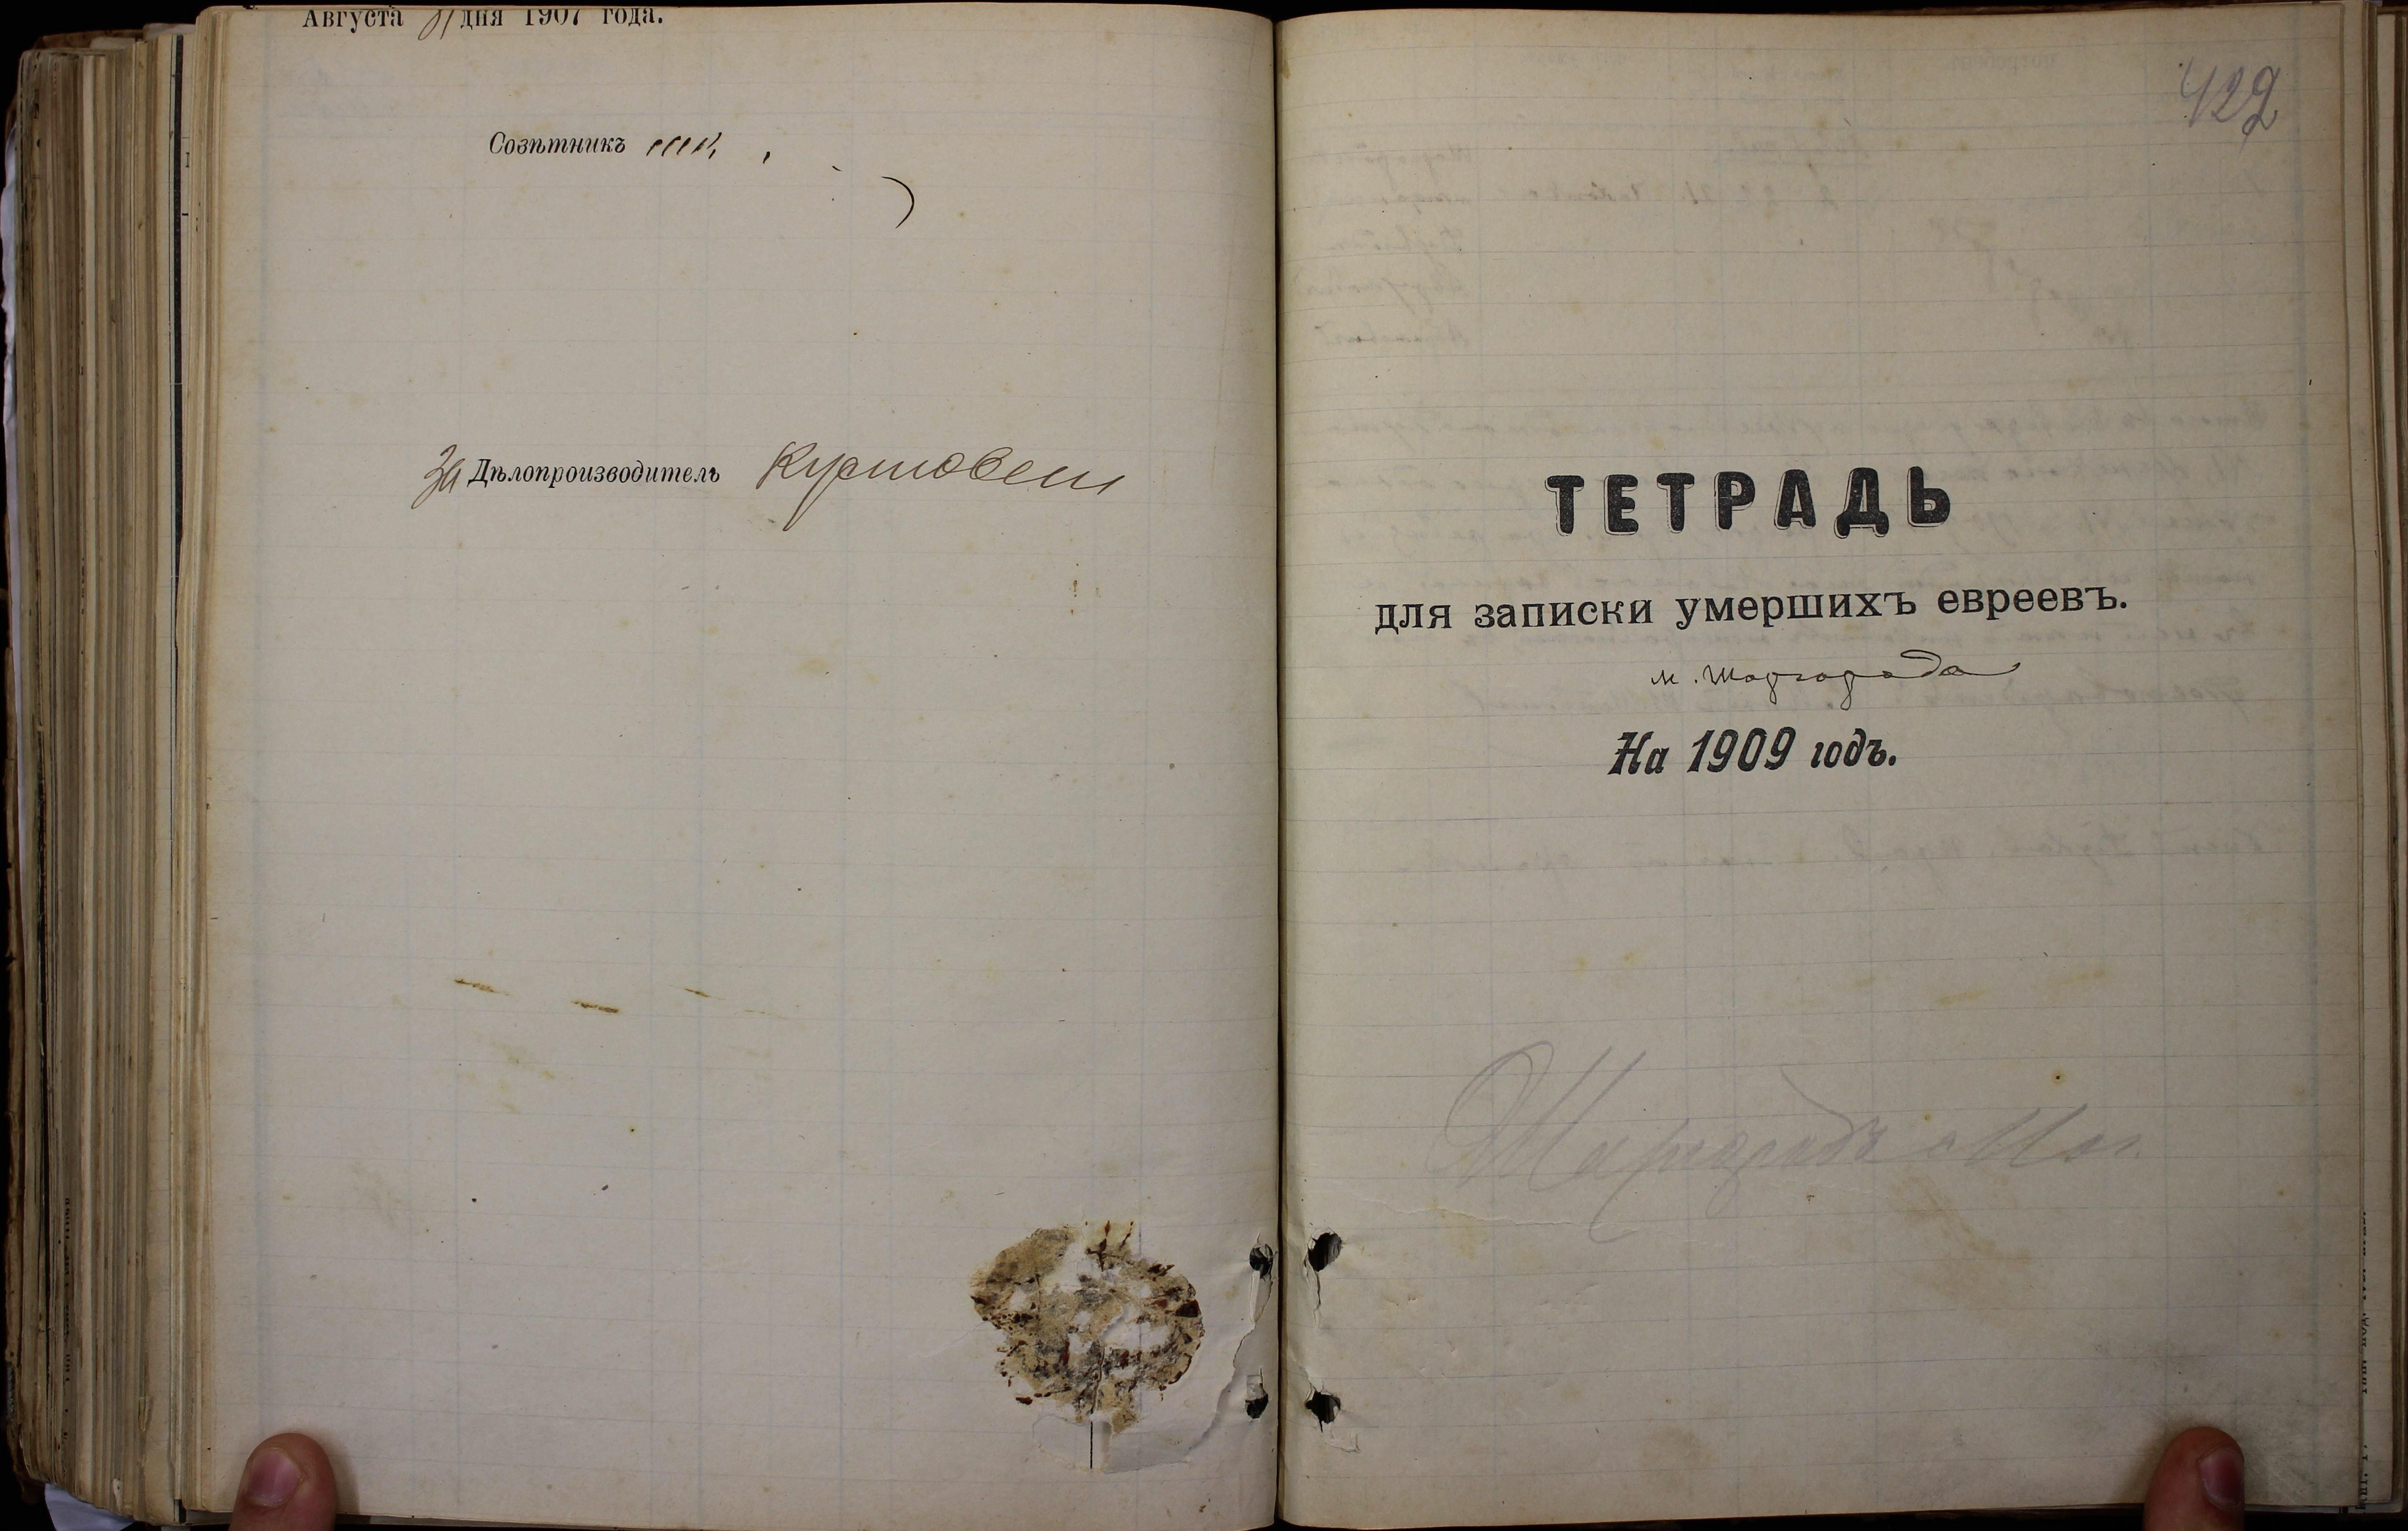 Августа 31 дня 1907 года.
Совѣтникъ
За Дѣлопроизводитель
422
ТЕТРАДЬ
для записки умершихъ евреевъ.
м. Шаргорода
На 1909 годъ.
Шаргородъ Мог.